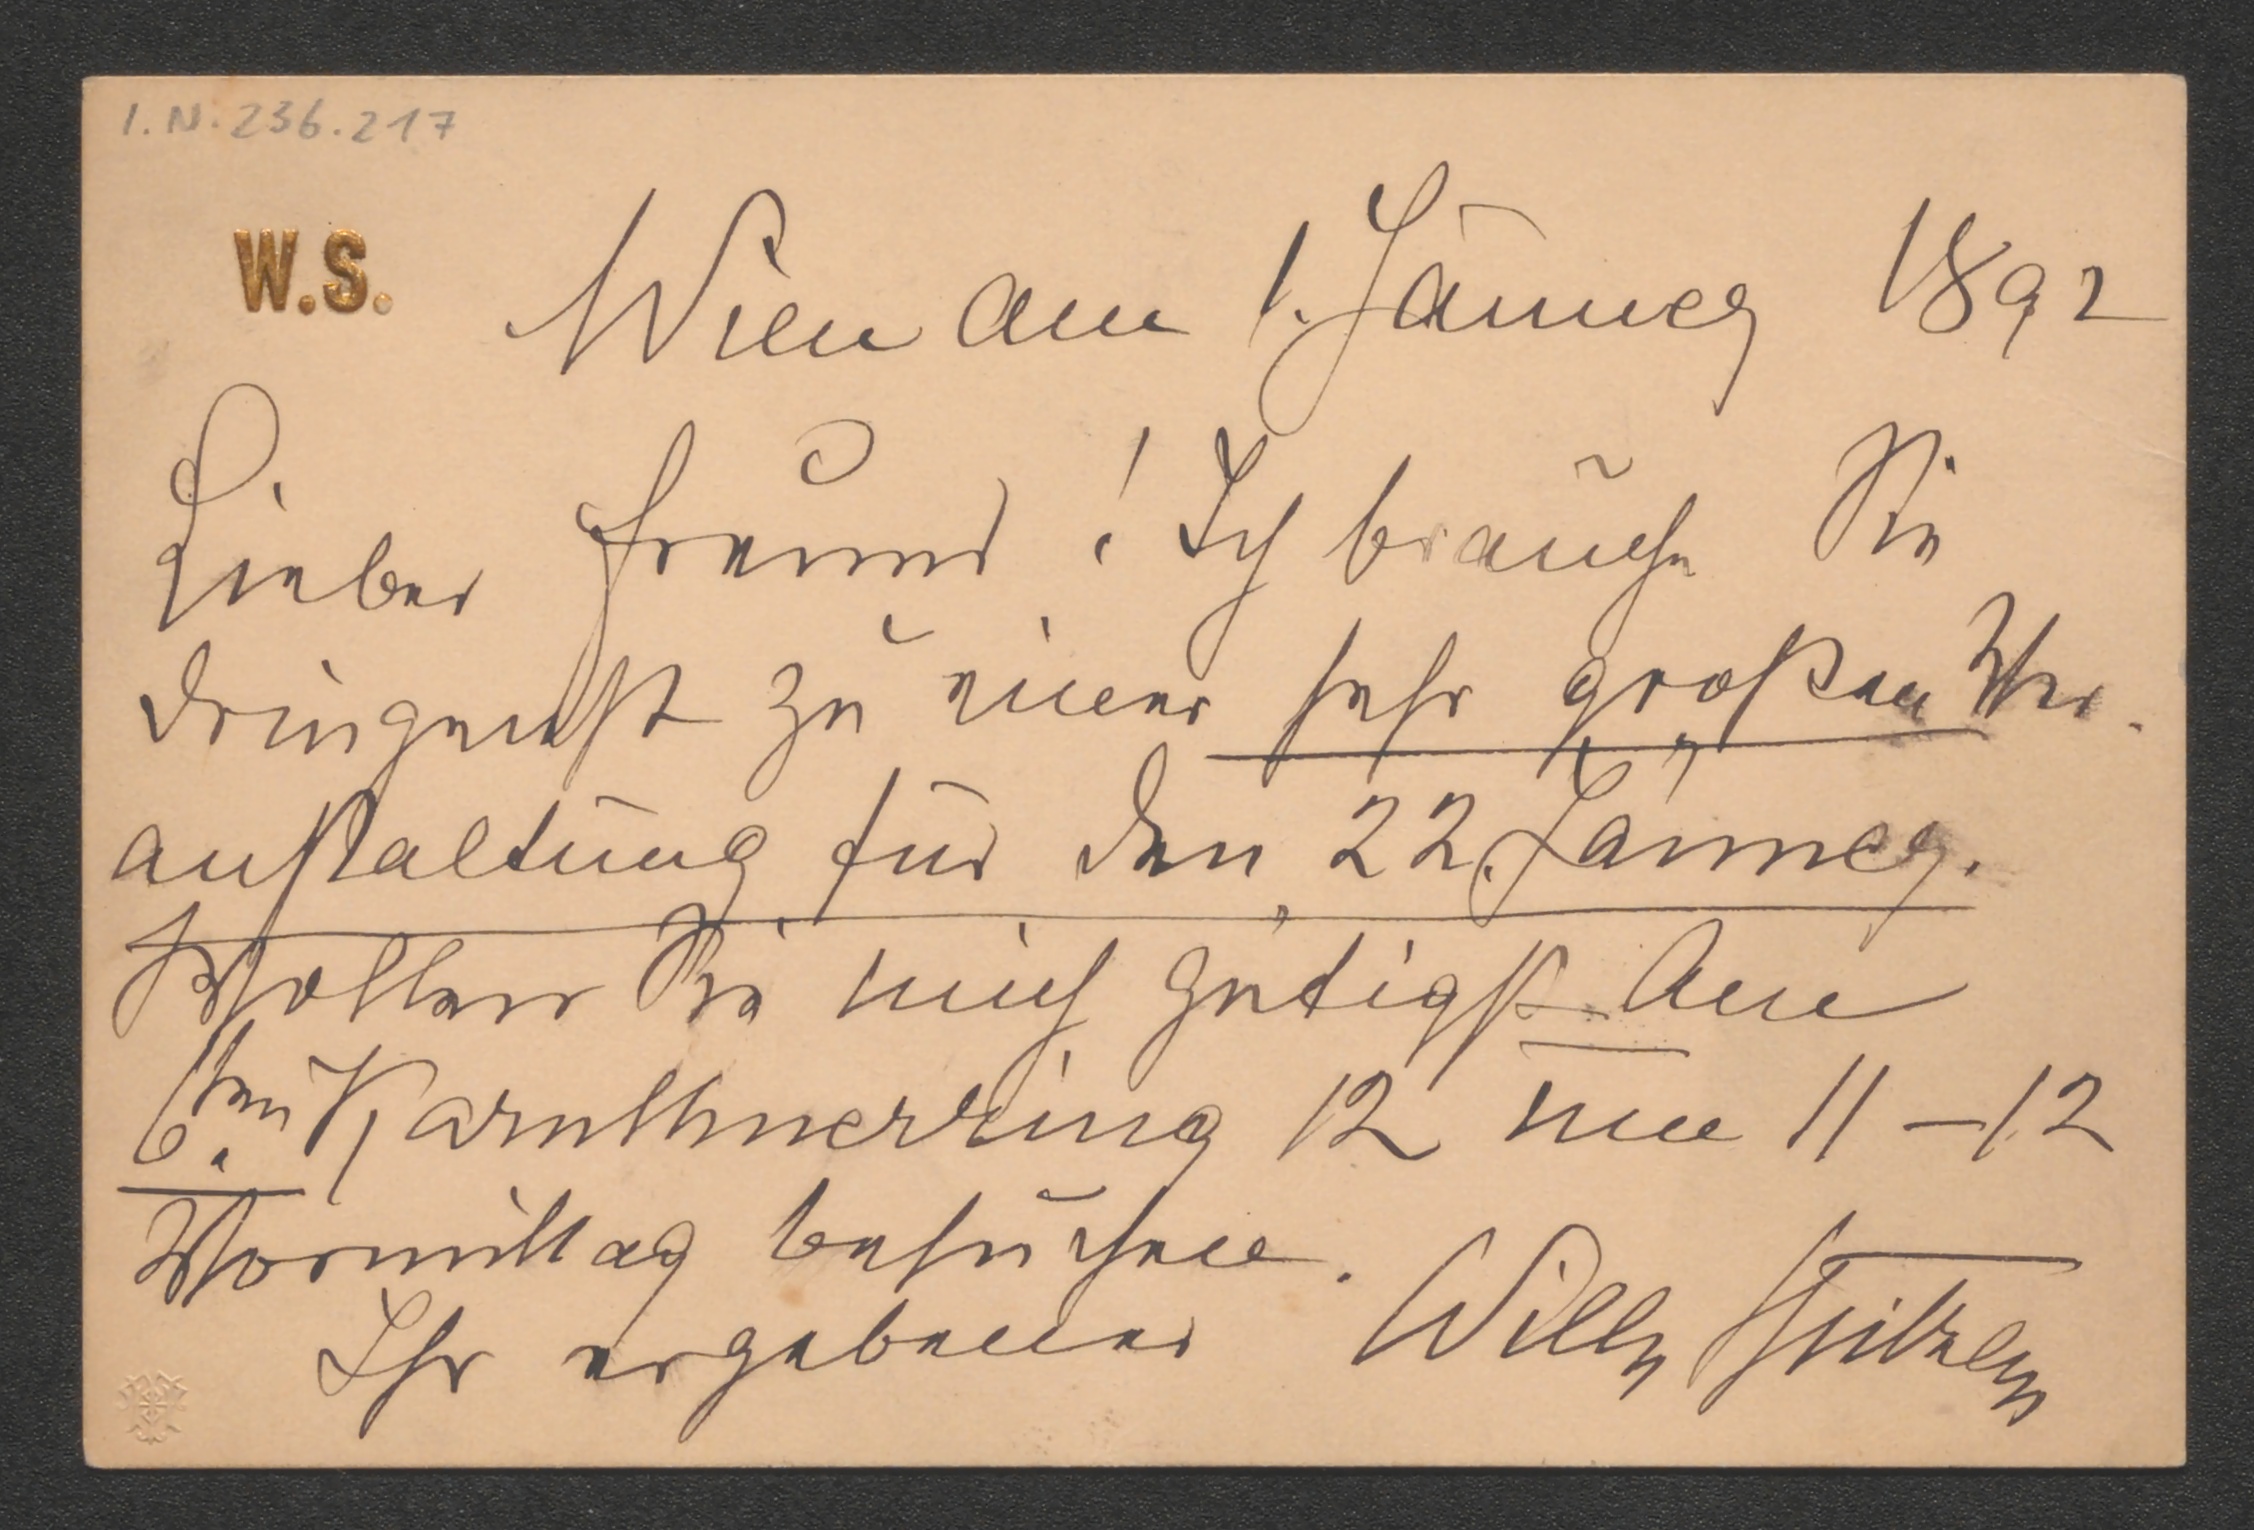 I.N. 236.217
W.S. Wien am 1. Jänner 1892
Lieber Freund! Ich brauche Sie
dringenst zu einer sehr großen Ver-
anstaltung für den 22. Jänner.
Wollen Sie mich gütigst am
6ten Karnthnerring 12 um 11-12
Vormittag besuchen.
Ihr ergebener Willy